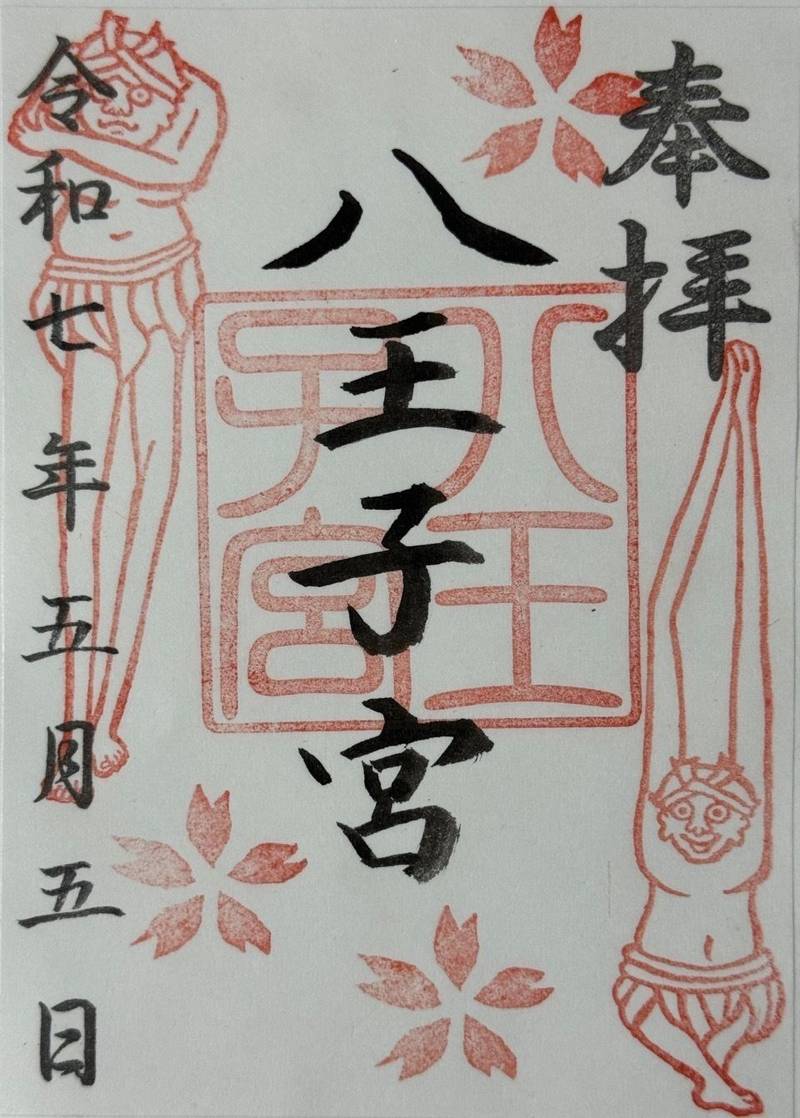 奉拝
八王子宮
八王子宮
令和七年五月五日